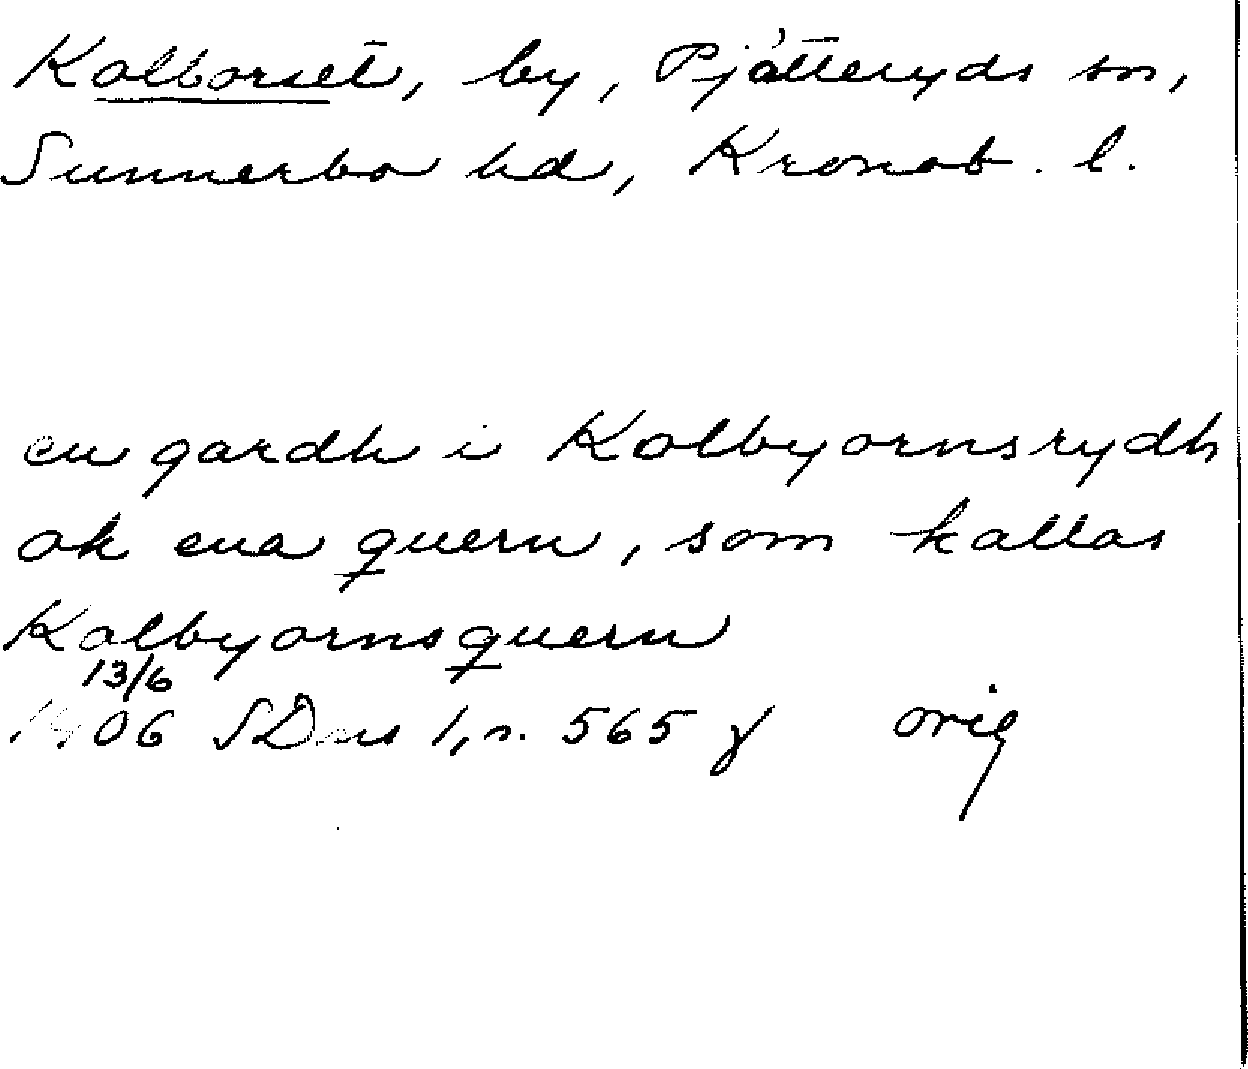 Kolborset, by, Pjätteryds sn,
Sunnerbo hd, Kronob. l.
en gardh i Kolbyornsrydh
ok ena quern, som kallas
Kolbyornsquern
13/6
1406 SDns 1, s. 565 f orig